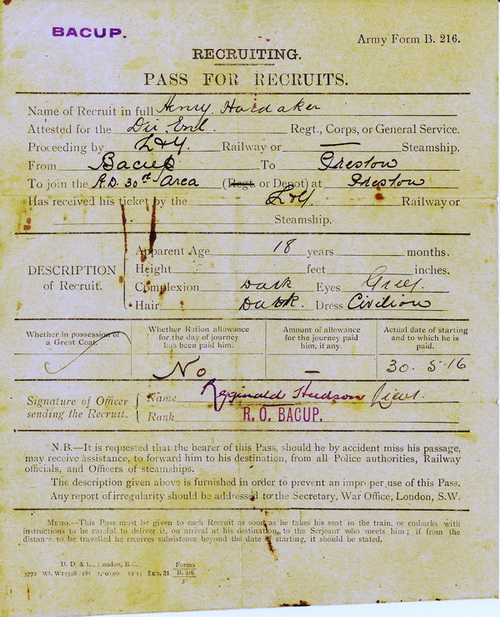 BACUP.
Army Form B. 216.
RECRUITING.
PASS FOR RECRUITS.
Name of Recruit in full Henry Hardaker
Attested for the Regt., Corps, or General Service.
Proceeding by L&Y. Railway or — Steamship.
From Bacup To Preston
To join the R.D. 30th Area (Regt. or Depot) at Preston
Has received his ticket by the L&Y. Railway or
Steamship.
DESCRIPTION of Recruit.
Apparent Age 18 years months.
Height feet inches.
Complexion Dark Eyes Grey
Hair Dark. Dress Civilian
Whether in possession of a Great Coat.
Whether Ration allowance for the day of journey has been paid him.
Amount of allowance for the journey paid him, if any.
Actual date of starting and to which he is paid.
No — 30.5.16
Signature of Officer sending the Recruit.
Name Reginald Hudson Lieut.
Rank R. O. BACUP.
N.B.—It is requested that the bearer of this Pass, should he by accident miss his passage,
may receive assistance, to forward him to his destination, from all Police authorities, Railway
officials, and Officers of steamships.
The description given above is furnished in order to prevent an improper use of this Pass.
Any report of irregularity should be addressed to the Secretary, War Office, London, S.W.
MEMO.—This Pass must be given to each Recruit as soon as he takes his seat in the train, or embarks with
instructions to be careful to deliver it, on arrival at his destination, to the Serjeant who meets him; if from the
distance to be travelled he receives subsistence beyond the date of starting, it should be stated.
D. D. & L., London, E.C. Forms
B. 216